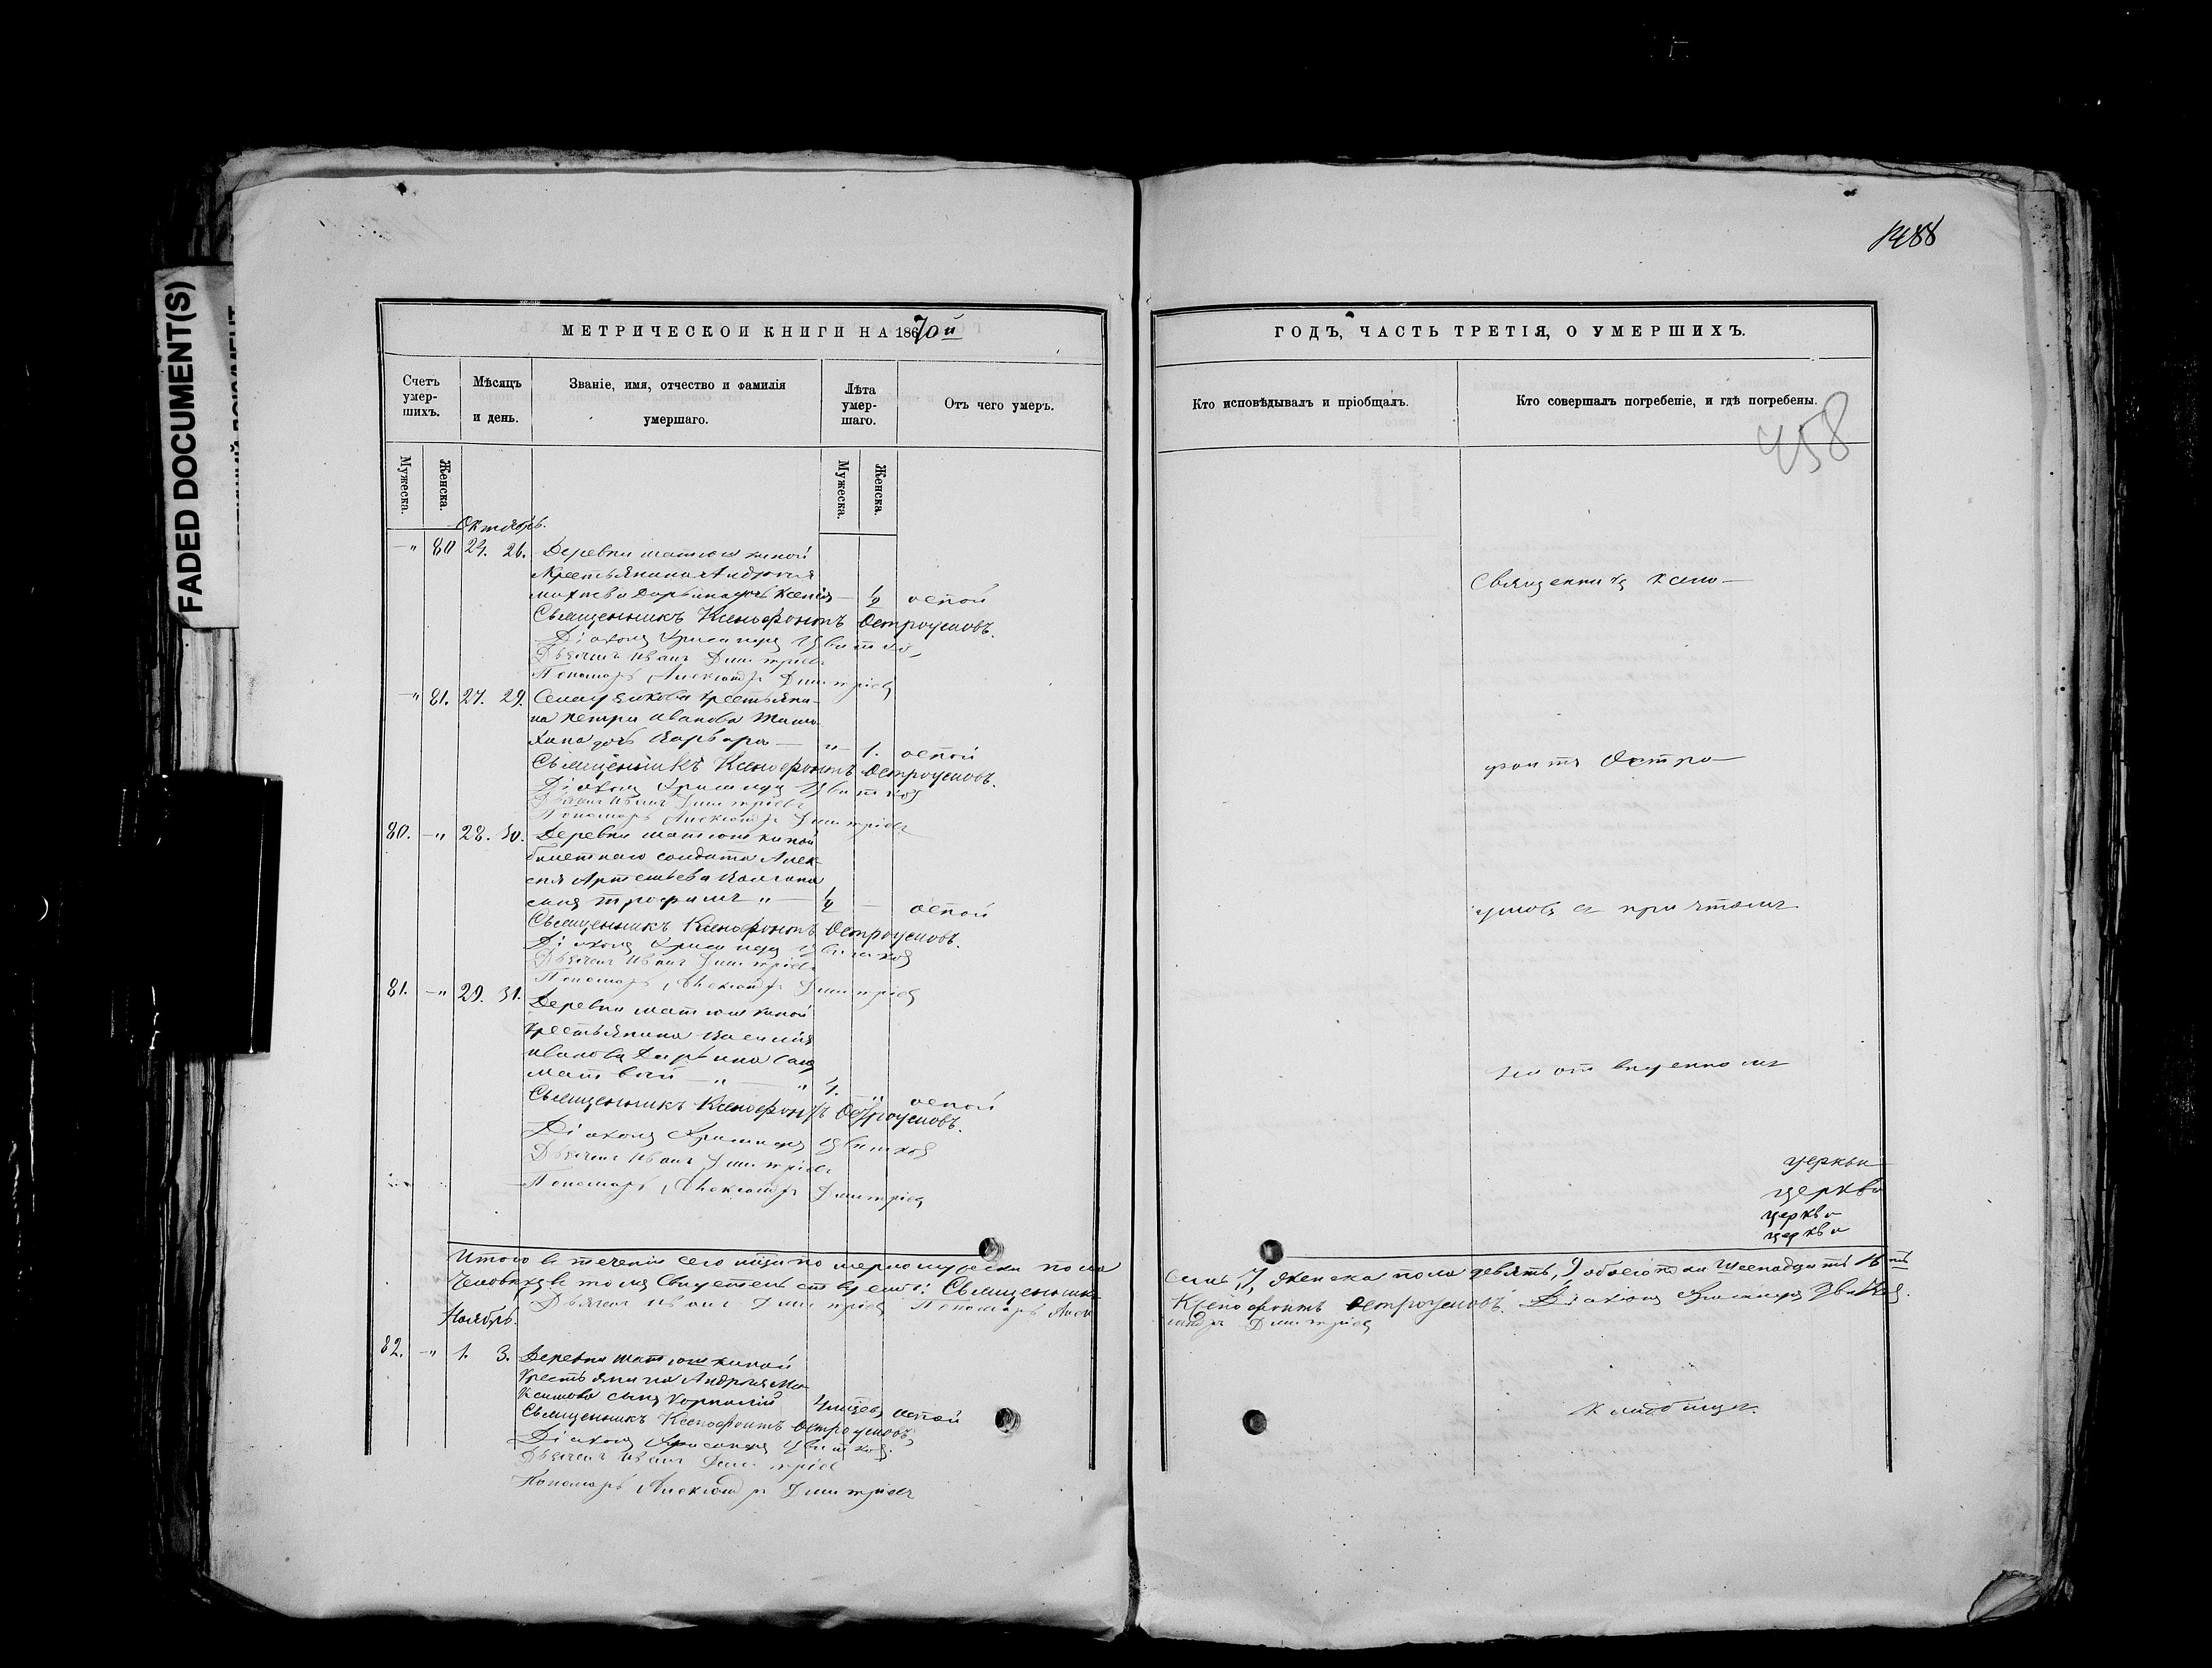 FADED DOCUMENT(S)
1488
МЕТРИЧЕСКОЙ КНИГИ НА 1870й
Счетъ умер-шихъ.
Мѣсяцъ и день.
Званіе, имя, отчество и фамилія умершаго.
Лѣта умер-шаго.
Отъ чего умеръ.
Мужеска.
Женска.
Мужеска.
Женска.
Октябрь.
—„ 80 24. 26. Деревни Матюшкиной
Крестьянина Андрея
дочь Ксенія — ½ оспой
Священникъ Ксенофонтъ Остроумовъ.
Діаконъ Хрисанфъ Цвѣтков
Дьячекъ Иванъ Дмитріевъ
Пономарь Александръ Дмитріевъ
—„ 81. 27. 29. крестьяни-
на Петра Иванова
дочь Варвара — „ 1. оспой
Священникъ Ксенофонтъ Остроумовъ.
Діаконъ Хрисанфъ Цвѣтков
Дьячекъ Иванъ Дмитріевъ
Пономарь Александръ Дмитріевъ
80. —„ 28. 30. Деревни Матюшкиной
билетнаго солдата Алек-
сея Артемьева
сынъ Трофимъ „ — ½ — оспой
Священникъ Ксенофонтъ Остроумовъ.
Діаконъ Хрисанфъ Цвѣтков
Дьячекъ Иванъ Дмитріевъ
Пономарь Александръ Дмитріевъ
81. —„ 29. 31. Деревни Матюшкиной
крестьянина Василія
Иванова сынъ
Матвѣй — „ — „ „ оспой
Священникъ Ксенофонтъ Остроумовъ.
Діаконъ Хрисанфъ Цвѣтков
Дьячекъ Иванъ Дмитріевъ
Пономарь Александръ Дмитріевъ
Итого въ теченіи сего мѣсяца померло мужеска пола
Священникъ
Дьячекъ Иванъ Дмитріевъ Пономарь Алек
Ноябрь.
82. —„ 1. 3. Деревни Матюшкиной
крестьянина Андрея Ма-
ксимова сынъ Корнилій оспой
Священникъ Ксенофонтъ Остроумовъ.
Діаконъ Хрисанфъ Цвѣтков
Дьячекъ Иванъ Дмитріевъ
Пономарь Александръ Дмитріевъ
ГОДЪ, ЧАСТЬ ТРЕТІЯ, О УМЕРШИХЪ.
Кто исповѣдывалъ и пріобщалъ.
Кто совершалъ погребеніе, и гдѣ погребены.
458
Священникъ Ксено—
фонтъ Остро—
умовъ съ причтомъ
на отведенномъ
церкви
церкви
церкви
церкви
семь, 7, женска пола девять, 9 обоего пола шеснадцать 16
Ксенофонтъ Остроумовъ. Діаконъ Хрисанфъ Цвѣтков.
сандръ Дмитріевъ
кладбищѣ.